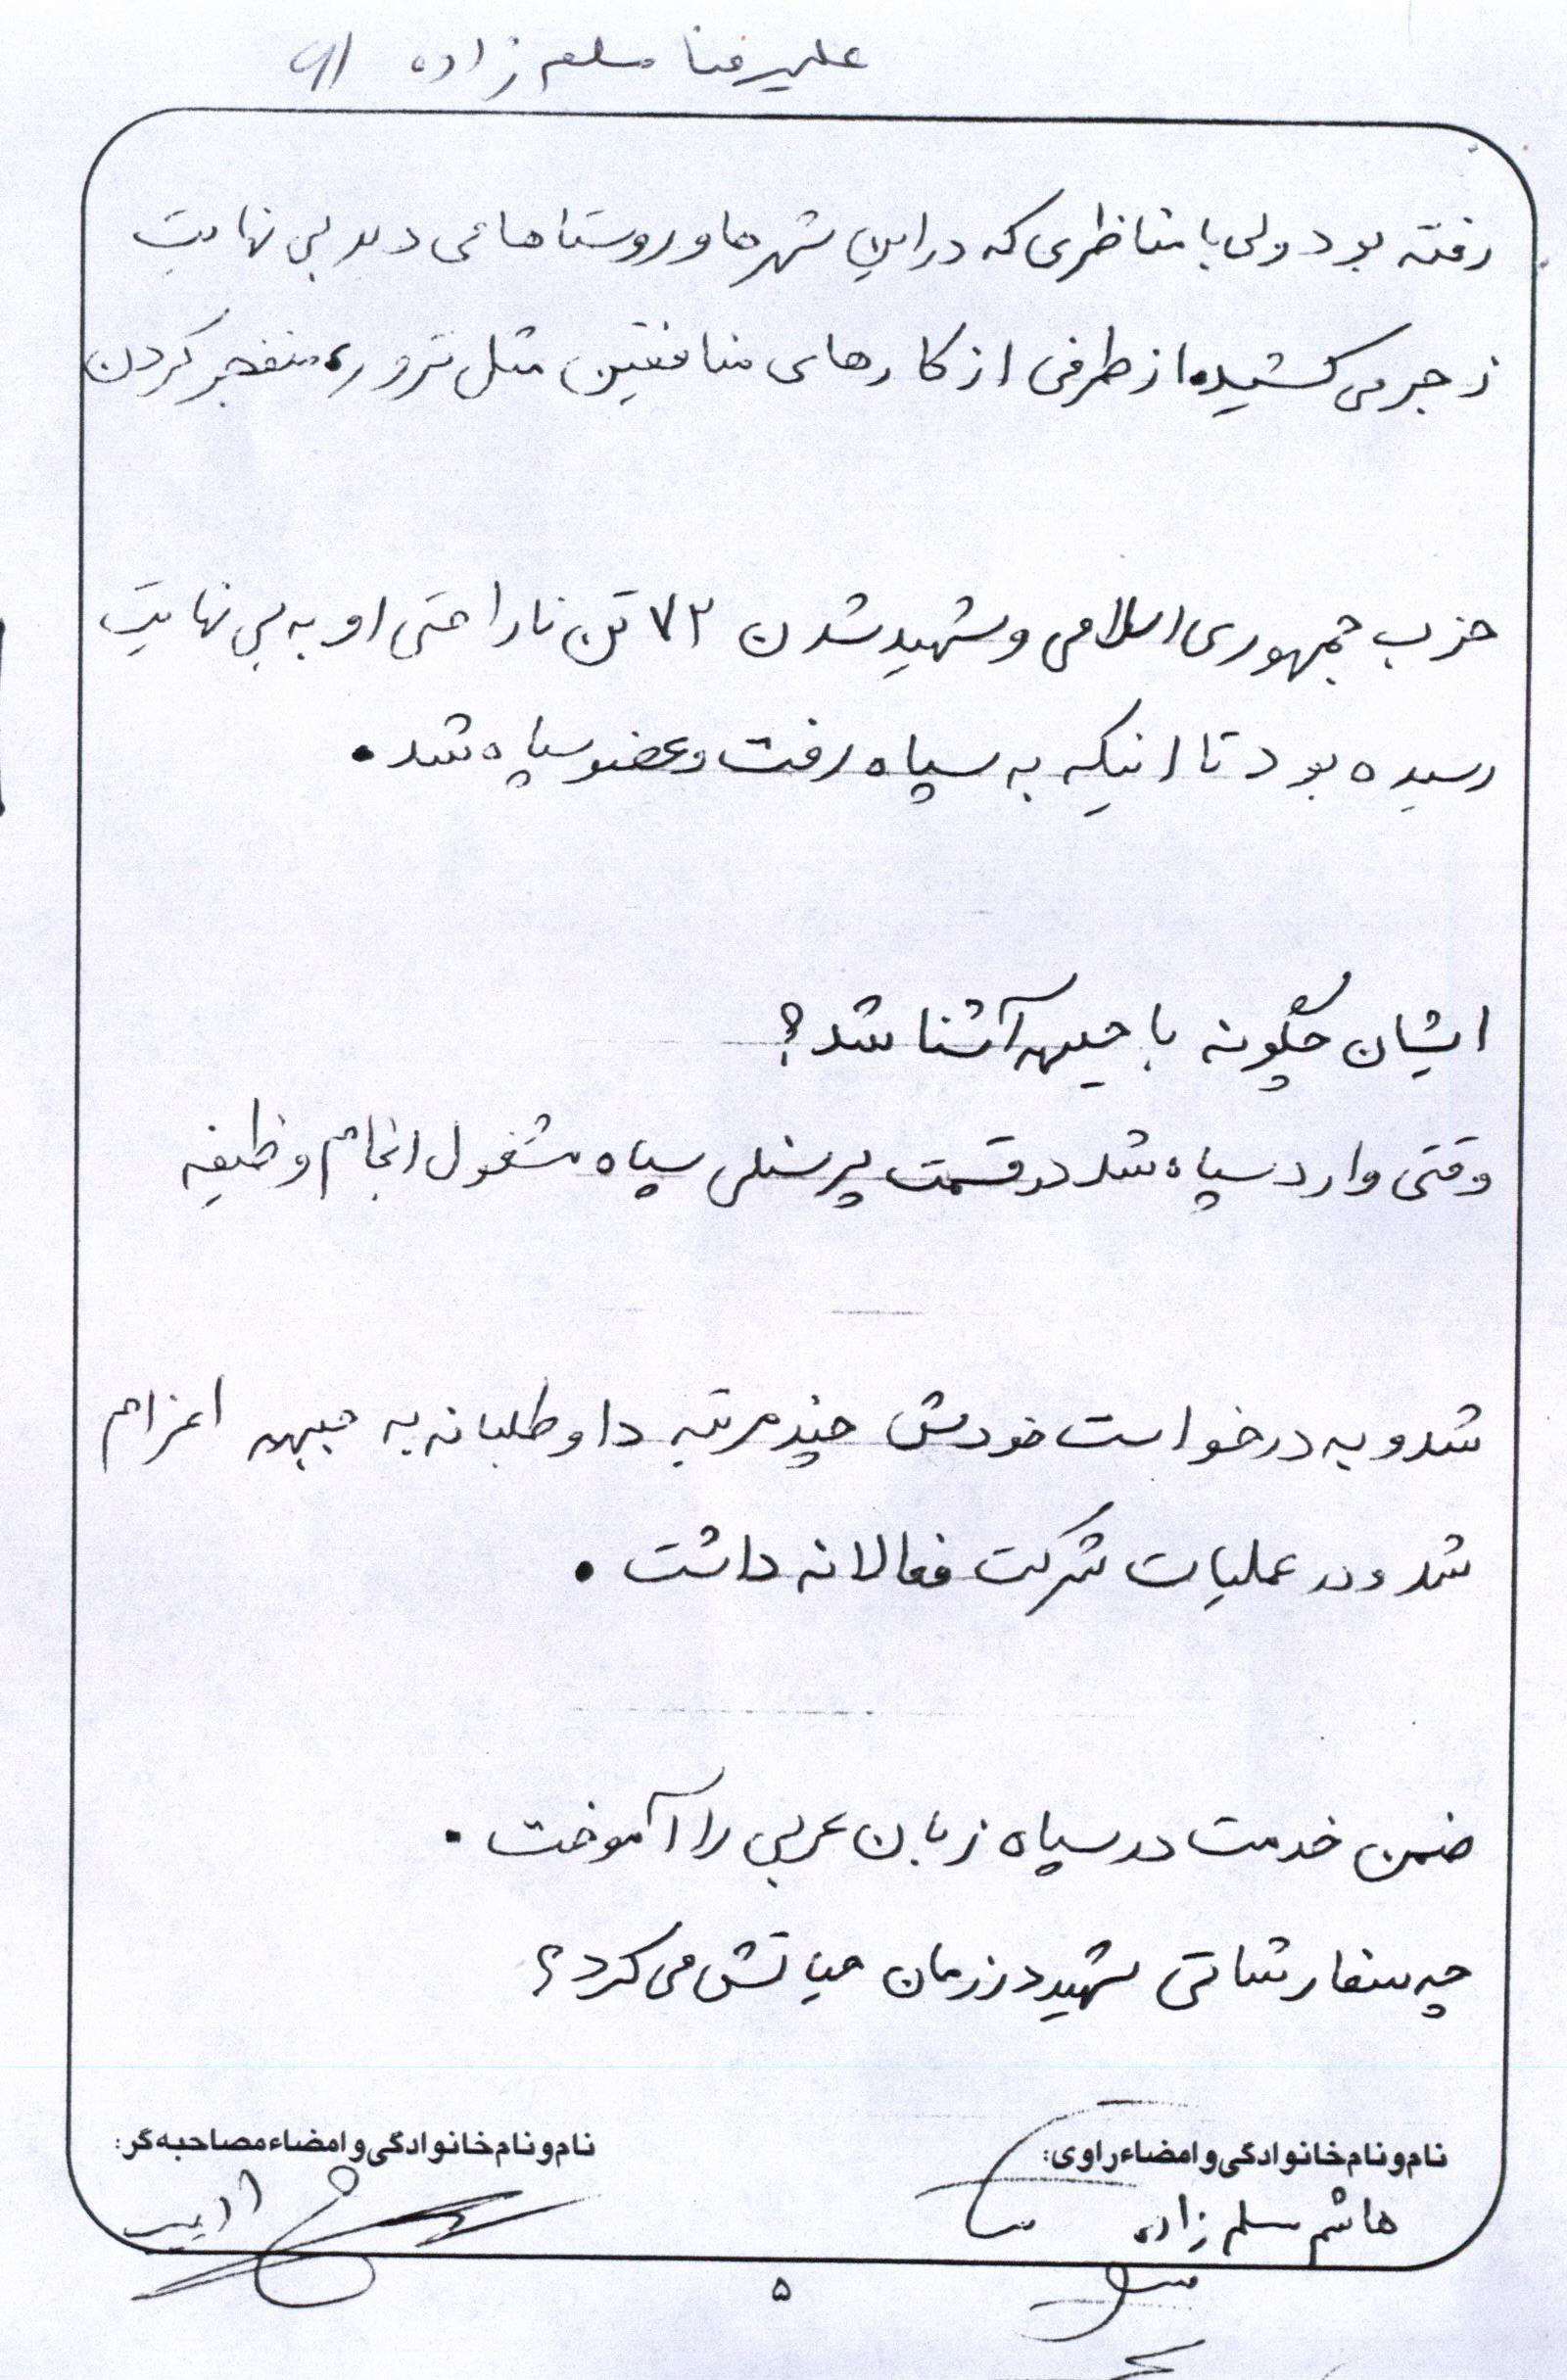 علیرضا مسلم زاده
رفته بود ولی با مناظری که در این شهرها و روستاها می دید بی نهایت
زجر می کشید، از طرفی از کارهای منافقین مثل ترور، منفجر کردن
حزب جمهوری اسلامی و شهید شدن ۷۲ تن ناراحتی او به بی نهایت
رسیده بود تا اینکه به سپاه رفت و عضو سپاه شد.
ایشان چگونه با جبهه آشنا شد؟
وقتی وارد سپاه شد در قسمت پرسنلی سپاه مشغول انجام وظیفه
شد و به درخواست خودش چند مرتبه داوطلبانه به جبهه اعزام
شد و در عملیات شرکت فعالانه داشت.
ضمن خدمت در سپاه زبان عربی را آموخت.
چه سفارشاتی شهید در زمان حیاتش می کرد؟
نام و نام خانوادگی و امضاء راوی:
نام و نام خانوادگی و امضاء مصاحبه گر:
هاشم مسلم زاده
۵